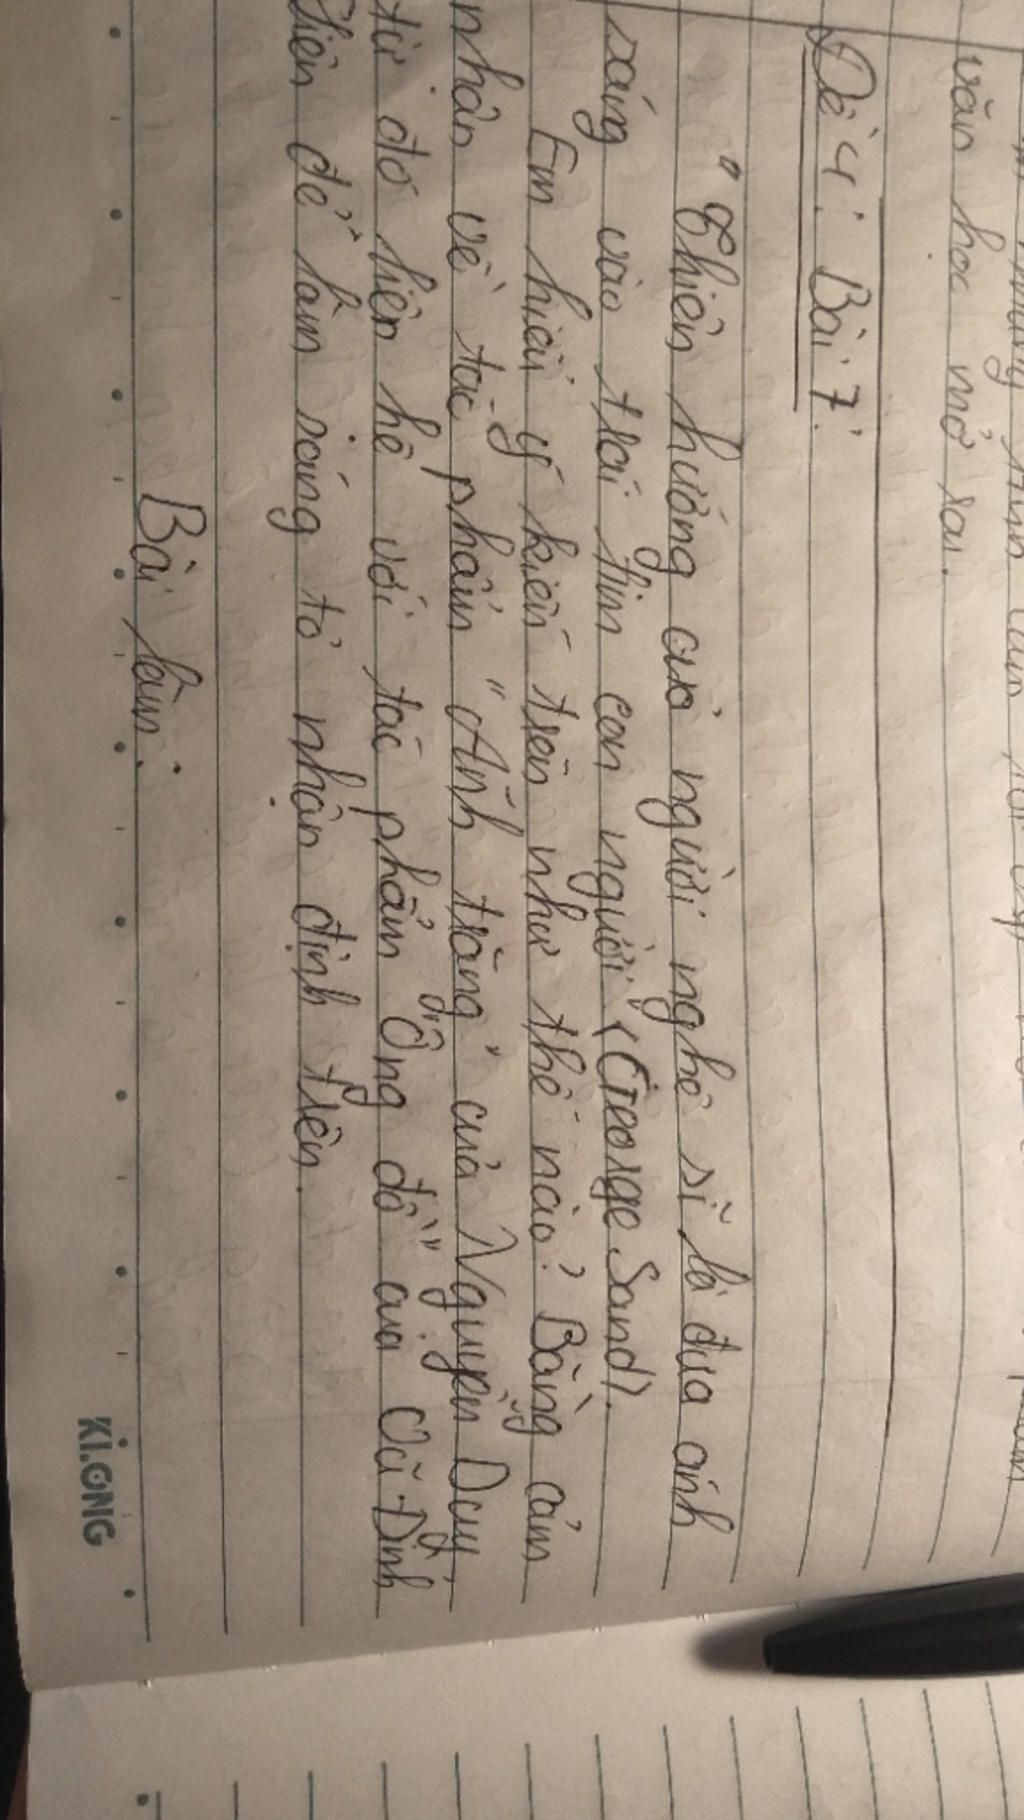 văn học mở sau.
Đề 4: Bài 7:
" Thiên hướng của người nghệ sĩ là đưa ánh
sáng vào trái tim con người" (George Sand).
Em hiểu ý kiến trên như thế nào? Bằng cảm
nhận về tác phẩm "Ánh trăng" của Nguyễn Duy,
từ đó liên hệ với tác phẩm "Ông đồ" của Vũ Đình
Liên để làm sáng tỏ nhận định trên.
Bài làm:
KLONG